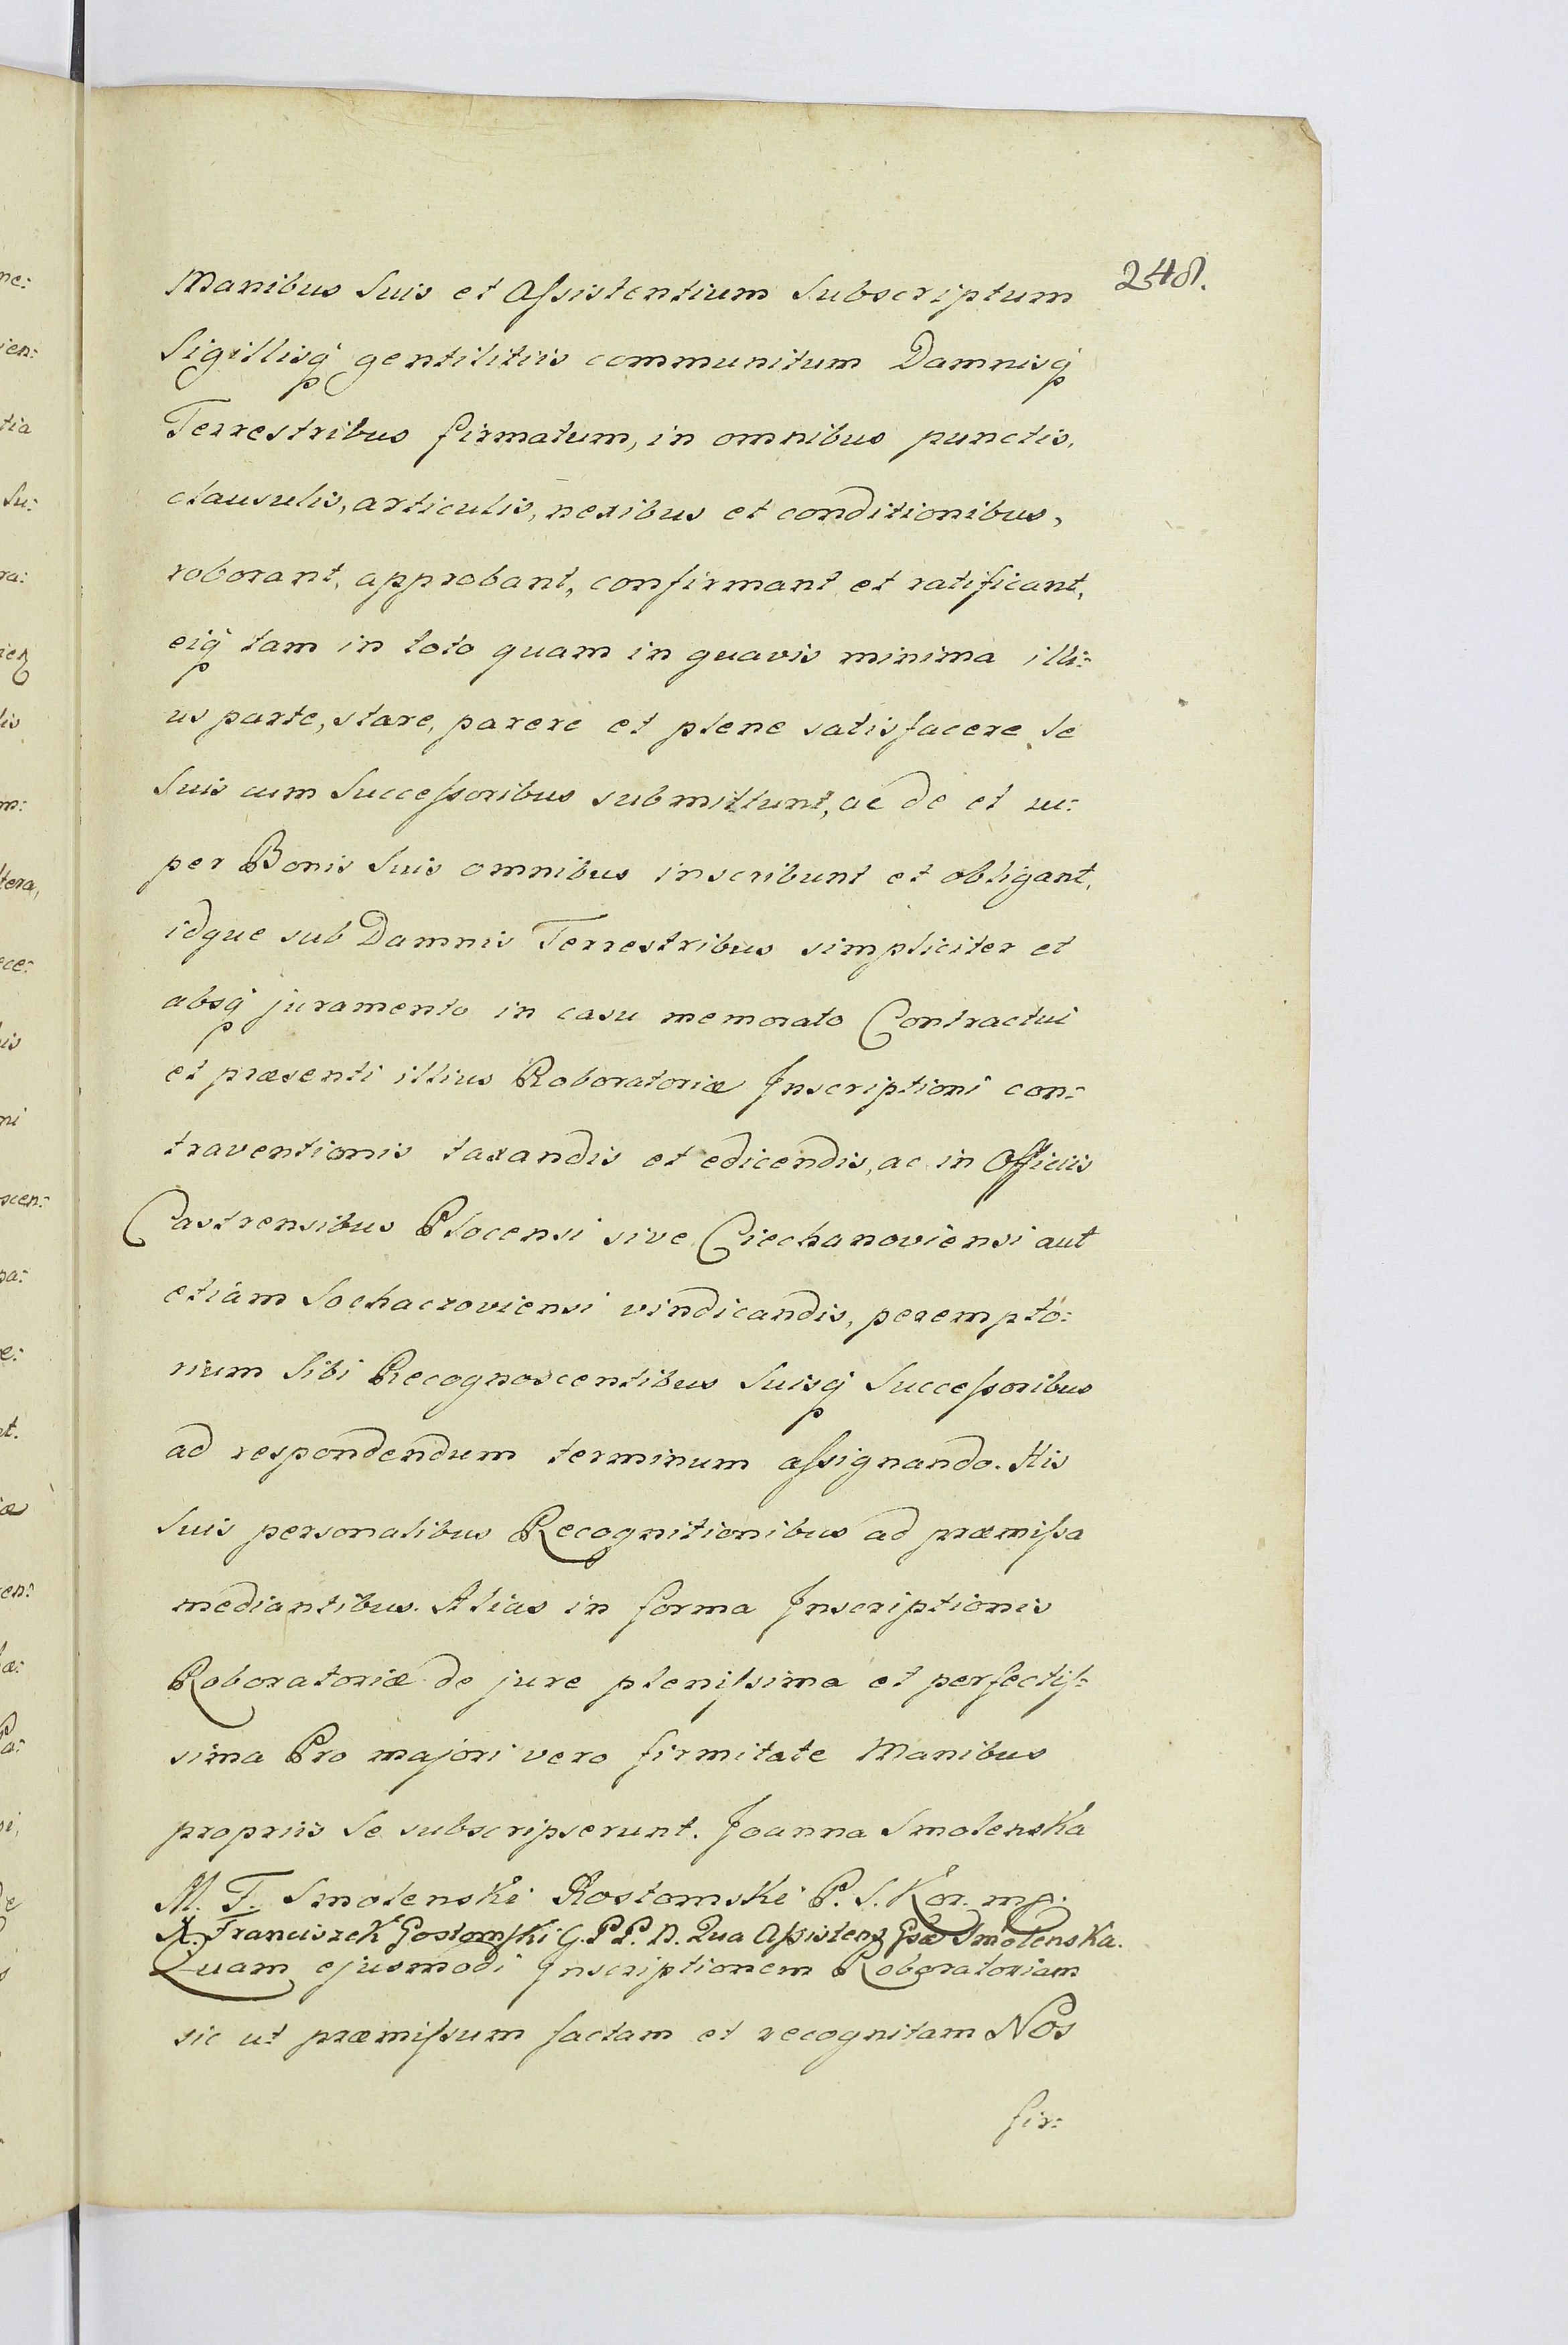 248.
Manibus Suis et Aſsistentium Subscriptum
Sigillisq̃ gentilitiis communitum Damnisq̃
Terrestribus firmatum, in omnibus punctis,
clausulis, articulis, nexibus et conditionibus,
roborant, approbant, confirmant et ratificant,
eiq̃ tam in toto quam in quavis minima illi:
us parte, stare, parere et plene satisfacere se
Suis cum Succeſsoribus submittunt, ac de et su:
per Bonis Suis omnibus inscribunt et obligant,
idque sub Damnis Terrestribus simpliciter et
absq̃ juramento in casu memorato Contractui
et præsenti illius Roboratoriæ Inscriptioni con:
traventionis taxandis et edicendis, ac in Officiis
Castrensibus Plocensi sive Ciechanoviensi aut
etiam Sochaczoviensi vindicandis, perempto:
rium Sibi Recognoscentibus Suisq̃ Succeſsoribus
ad respondendum terminum aſsignando. His
Suis personalibus Recognitionibus ad præmiſsa
mediantibus. Alias in forma Inscriptionis
Roboratoriæ de jure pleniſsima et perfectiſ:
sima Pro majori vero firmitate Manibus
propriis Se subscripserunt. Joanna Smolenska
M. T. Smolenski Rostomski P. S. Kor. mp.
X. Franciszek Gostomski G. P P. D. Qua Aſsistens Gsæ Smolenska.
Quam ejusmodi Inscriptionem Roboratoriam
sic ut præmiſsum factam et recognitam Nos
fir: